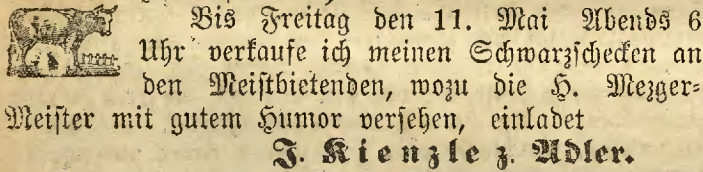 Bis Freitag den 11. Mai Abends 6
Uhr verkaufe ich meinen Schwarzschecken an
den Meistbietenden, wozu die H. Mezger=
Meister mit gutem Humor versehen, einladet
J. Kienzle z. Adler.